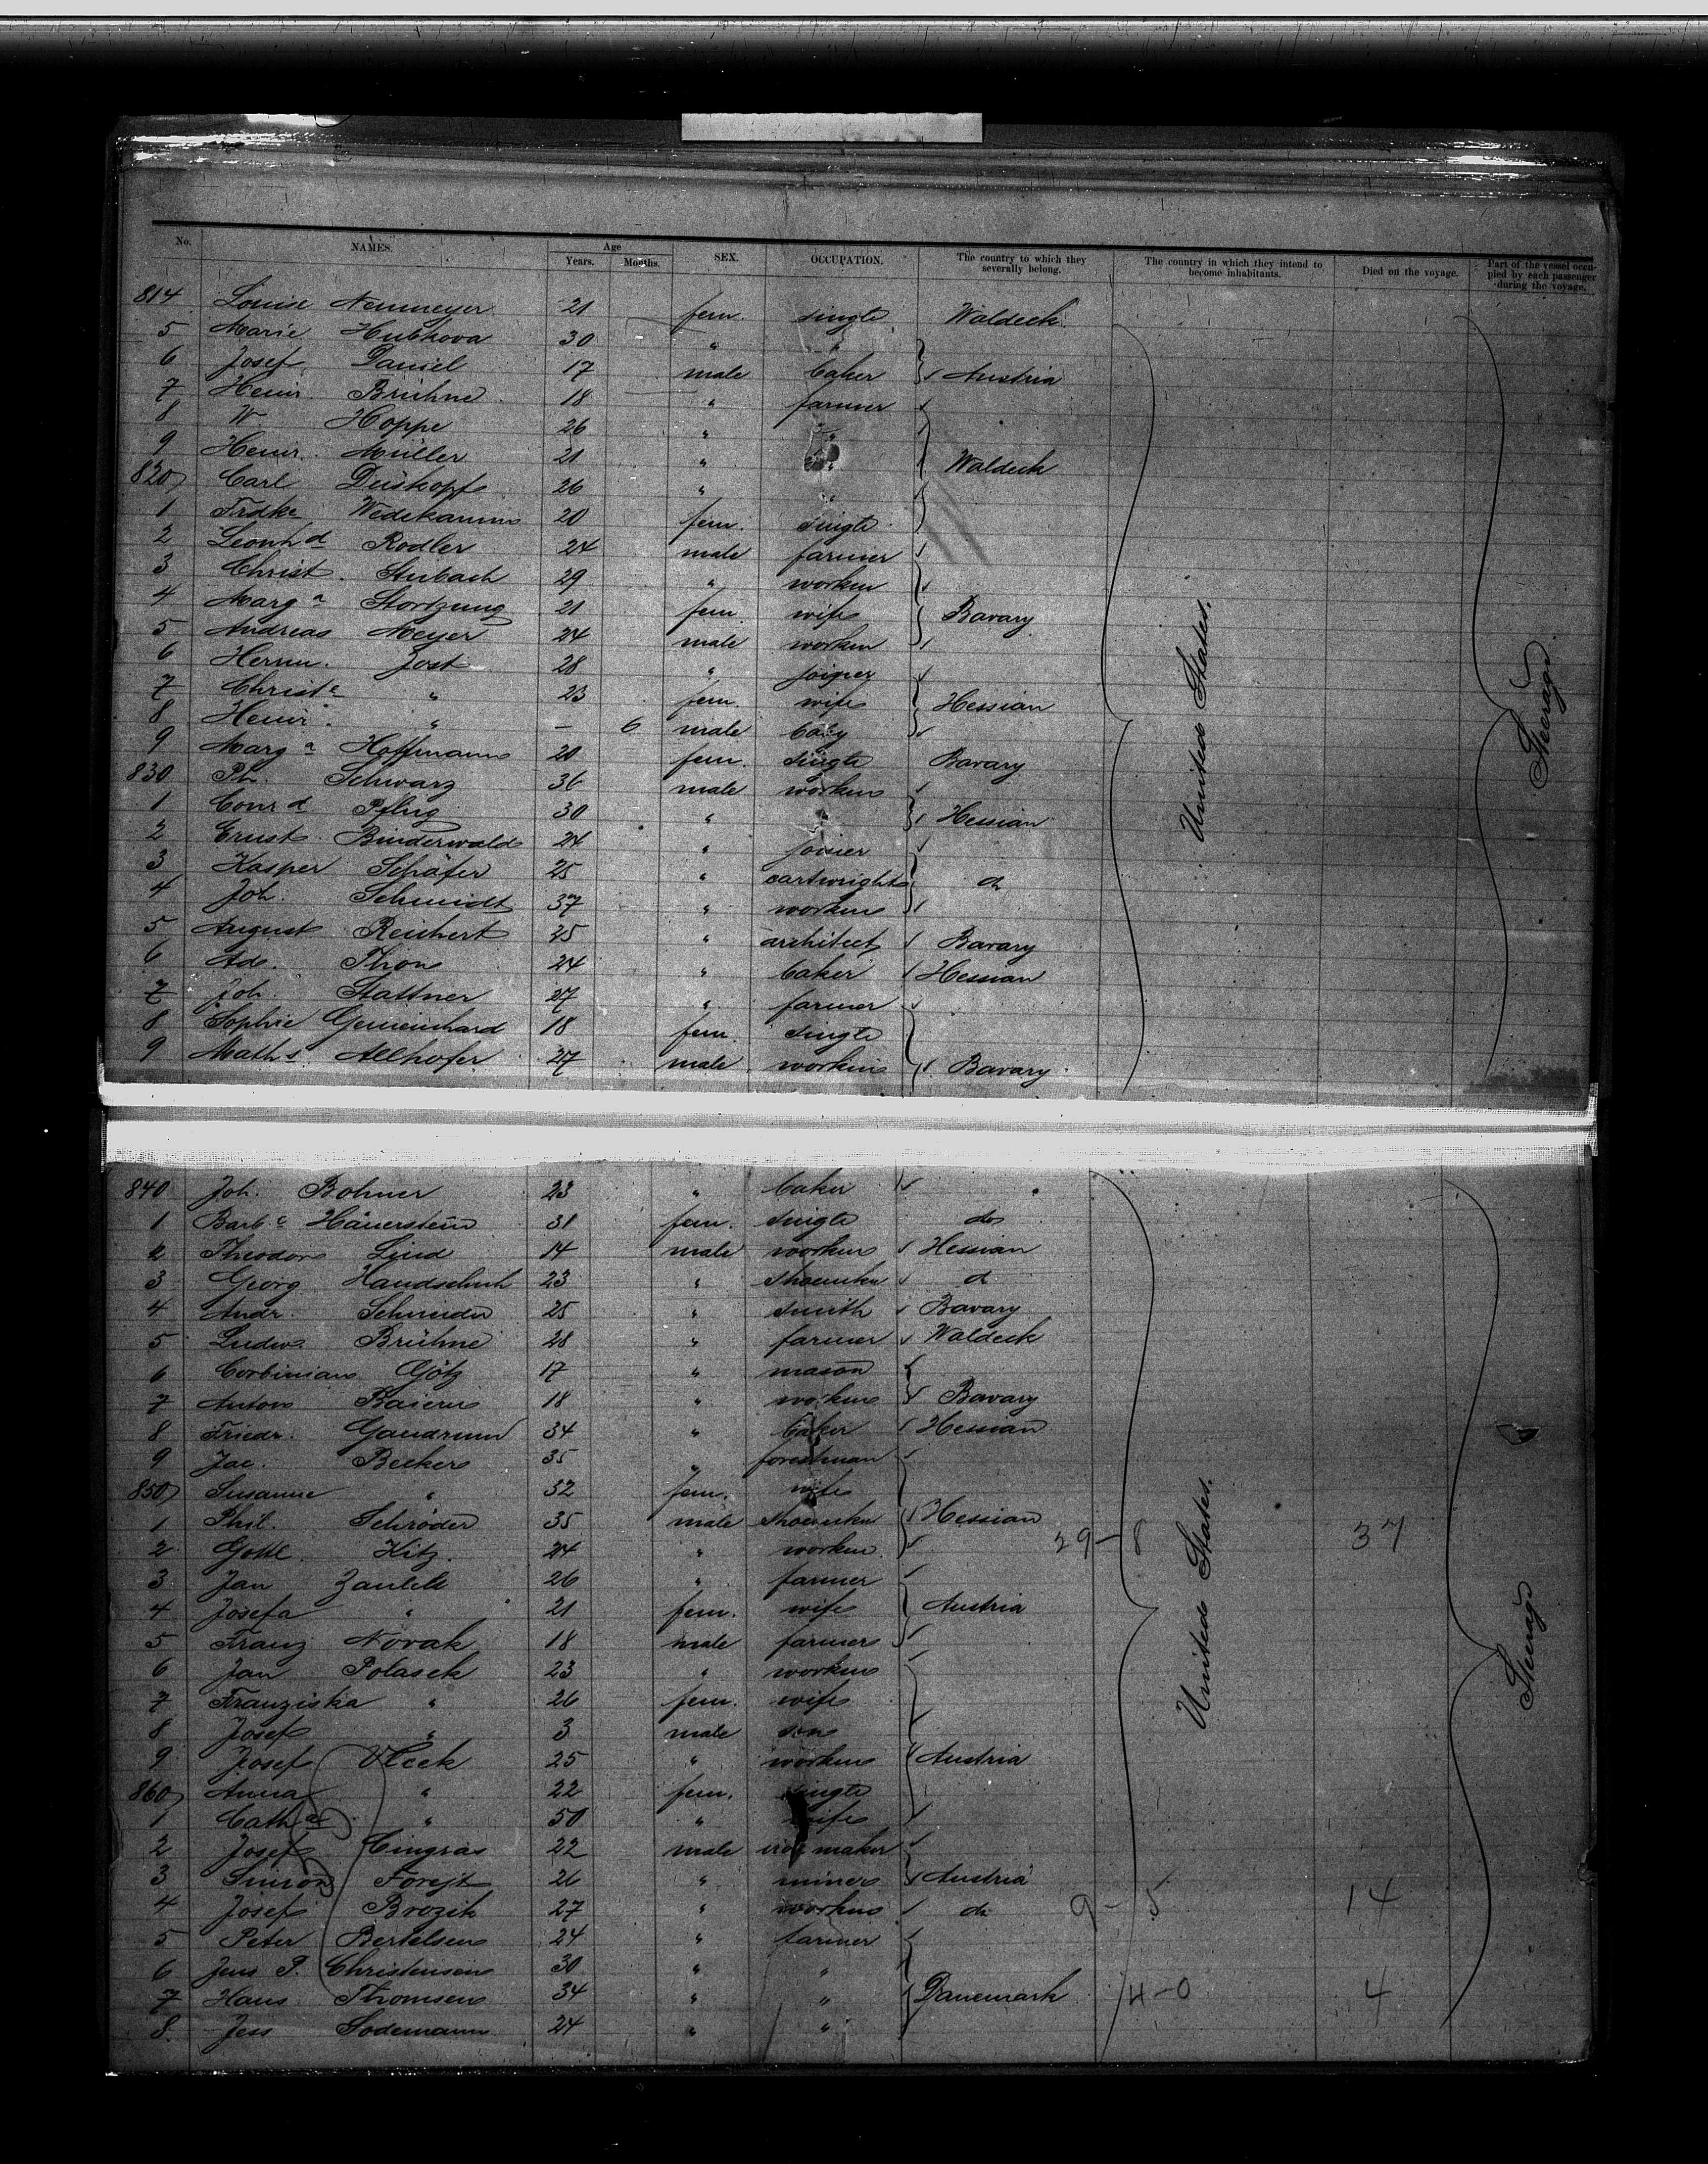 No. NAMES. Age Years. Months. SEX. OCCUPATION. The country to which they severally belong. The country in which they intend to become inhabitants. Died on the voyage. Part of the vessel occupied by each passenger during the voyage.
814 Louise Neumeyer 21 fem. single Waldeck
5 Marie Hubkova 30 " "
6 Josef Daniel 17 male baker Austria
7 Heinr. Brühne 18 " farmer
8 W Hoppe 26 " "
9 Heinr. Müller 21 " " Waldeck
820 Carl 26 " "
1 Frdke Wedekamm 20 fem. single
2 Leonhd Rodler 24 male farmer
3 Christ. Stubach 29 " workm
4 Marga 21 fem. wife Bavary
5 Andreas Meyer 24 male workm
6 Herm. Jost 28 " joigner
7 Christe " 23 fem. wife Hessian
8 Heinr. " – 6 male baby
9 Marga Hoffmann 20 fem. single Bavary
830 Ph. Schwarz 36 male workm
1 Conrd Pflug 30 " " Hessian
2 Ernst Binderwald 24 " joinier
3 Kasper Schäfer 25 " cartwright do
4 Joh. Schmidt 37 " workm
5 August Reichert 25 " architect Bavary
6 Ad. Thon 24 " baker Hessian
7 Joh. Stattner 27 " farmer
8 Sophie Gemeinhard 18 fem. single
9 Maths Allhofer 27 male workm Bavary
United States.
Steerage
840 Joh. Bohner 23 " baker
1 Barba Häuerstein 31 fem. single do
2 Theodor Lind 14 male workm Hessian
3 Georg Handschuh 23 " shoemkr do
4 Andr. Schneider 25 " smith Bavary
5 Ludw. Brühne 28 " farmer Waldeck
6 Corbinian Götz 17 " mason
7 Anton Baierm 18 " workm Bavary
8 Friedr. Gaudrum 34 " baker Hessian
9 Jac. Becker 35 " forestman
850 Susanne " 32 fem. wife
1 Phil. Schröder 35 male shoemkr Hessian 29-8 37
2 Gottl. Hitz 24 " workm
3 Jan 26 " farmer
4 Josefa " 21 fem. wife Austria
5 Franz Novak 18 male farmer
6 Jan Polasek 23 " workm
7 Franziska " 26 fem. wife
8 Josef " 3 male son
9 Josef Vlcek 25 " workm Austria
860 Anna " 22 fem. single
1 Catha " 50 " wife
2 Josef Cingras 22 male maker
3 Simon Forejt 26 " miner Austria
4 Josef Brozik 27 " workm do 9-5 14
5 Peter Bertelsen 24 " farmer
6 Jens P. Christensen 30 " "
7 Hans Thomsen 34 " " Danemark 4-0 4
8 Jess Sodemann 24 " "
United States.
Steerage